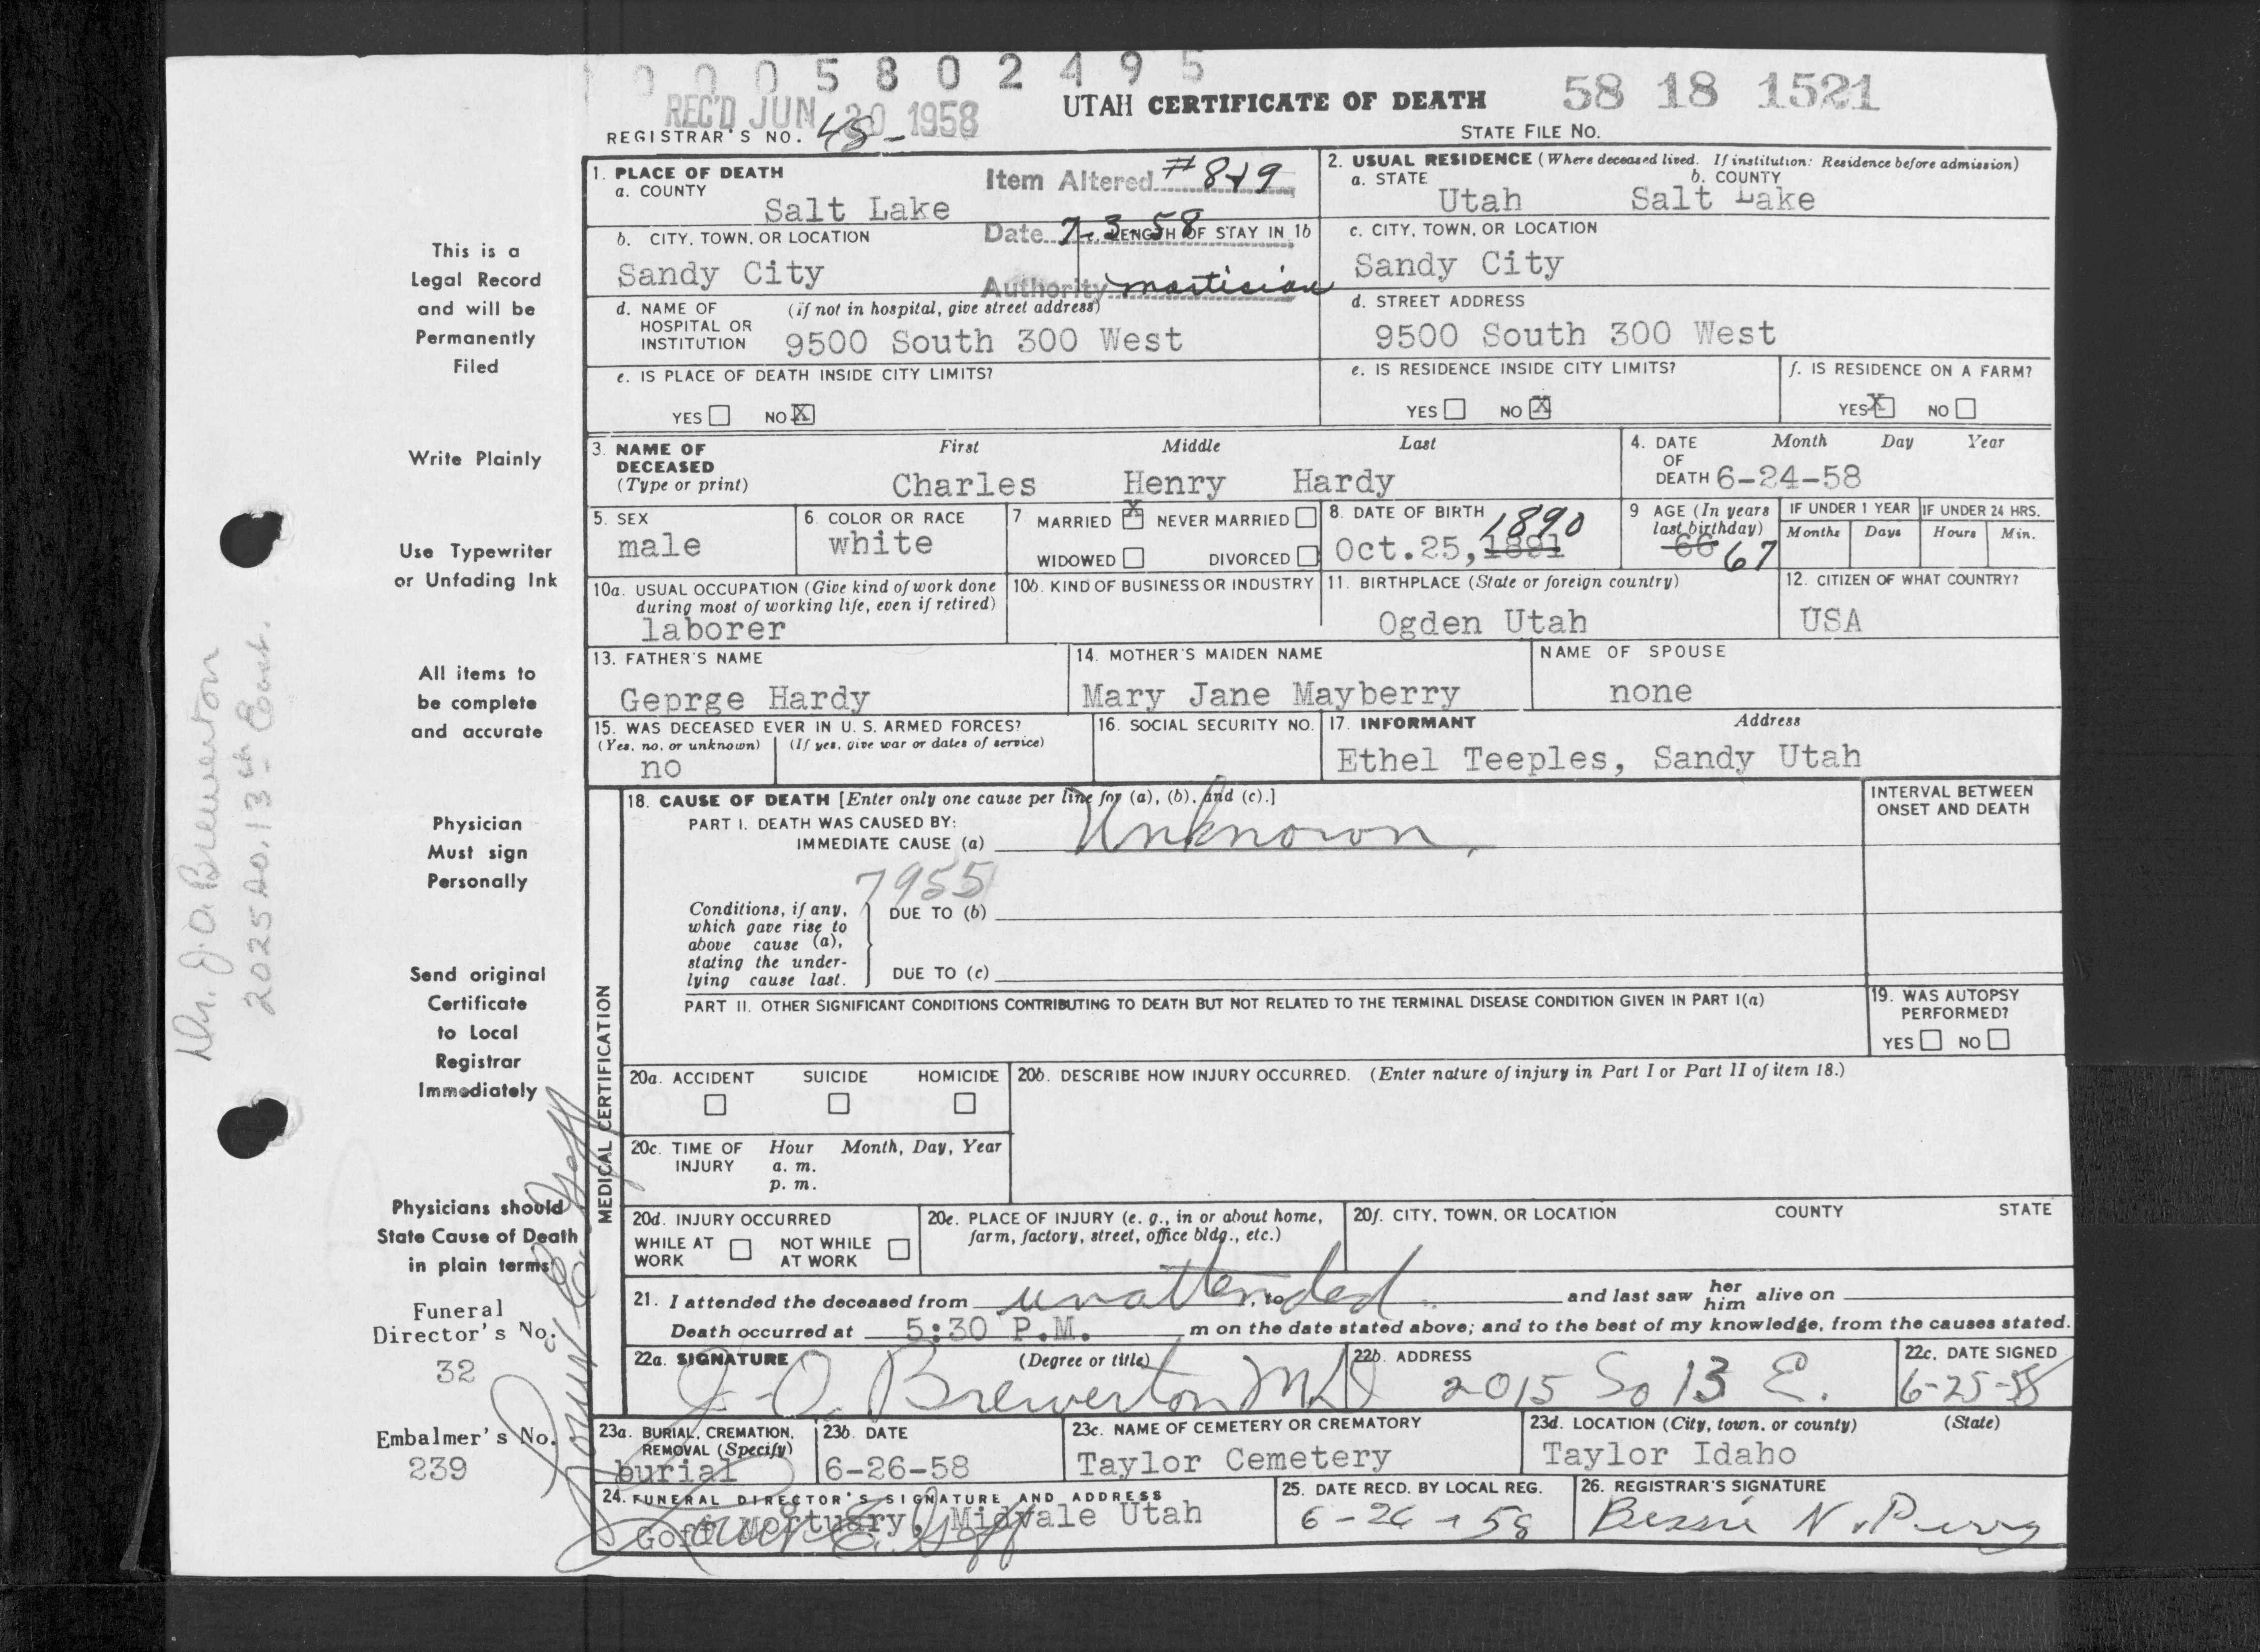 0 0 0 5 8 0 2 4 9 5
REC'D JUN 30 1958
UTAH CERTIFICATE OF DEATH
58 18 1521
REGISTRAR'S NO. 48-
STATE FILE NO.
1. PLACE OF DEATH
a. COUNTY
Salt Lake
Item Altered #8+9
Date 7-3-58
Authority mortician
2. USUAL RESIDENCE (Where deceased lived. If institution: Residence before admission)
a. STATE
Utah
b. COUNTY
Salt Lake
b. CITY, TOWN, OR LOCATION
Sandy City
c. LENGTH OF STAY IN 1b
c. CITY, TOWN, OR LOCATION
Sandy City
d. NAME OF HOSPITAL OR INSTITUTION
(if not in hospital, give street address)
9500 South 300 West
d. STREET ADDRESS
9500 South 300 West
e. IS PLACE OF DEATH INSIDE CITY LIMITS?
YES NO X
e. IS RESIDENCE INSIDE CITY LIMITS?
YES NO X
f. IS RESIDENCE ON A FARM?
YES X NO
3. NAME OF DECEASED
(Type or print)
First Middle Last
Charles Henry Hardy
4. DATE OF DEATH
Month Day Year
6-24-58
5. SEX
male
6. COLOR OR RACE
white
7. MARRIED X NEVER MARRIED
WIDOWED DIVORCED
8. DATE OF BIRTH
Oct.25, 1891 1890
9 AGE (In years last birthday)
66 67
IF UNDER 1 YEAR
Months Days
IF UNDER 24 HRS.
Hours Min.
10a. USUAL OCCUPATION (Give kind of work done during most of working life, even if retired)
laborer
10b. KIND OF BUSINESS OR INDUSTRY
11. BIRTHPLACE (State or foreign country)
Ogden Utah
12. CITIZEN OF WHAT COUNTRY?
USA
13. FATHER'S NAME
Geprge Hardy
14. MOTHER'S MAIDEN NAME
Mary Jane Mayberry
NAME OF SPOUSE
none
15. WAS DECEASED EVER IN U. S. ARMED FORCES?
(Yes, no, or unknown) (If yes, give war or dates of service)
no
16. SOCIAL SECURITY NO.
17. INFORMANT Address
Ethel Teeples, Sandy Utah
MEDICAL CERTIFICATION
18. CAUSE OF DEATH [Enter only one cause per line for (a), (b), and (c).]
PART I. DEATH WAS CAUSED BY:
IMMEDIATE CAUSE (a) Unknown
7955
INTERVAL BETWEEN ONSET AND DEATH
Conditions, if any, which gave rise to above cause (a), stating the underlying cause last.
DUE TO (b)
DUE TO (c)
PART II. OTHER SIGNIFICANT CONDITIONS CONTRIBUTING TO DEATH BUT NOT RELATED TO THE TERMINAL DISEASE CONDITION GIVEN IN PART I(a)
19. WAS AUTOPSY PERFORMED?
YES NO
20a. ACCIDENT SUICIDE HOMICIDE
20b. DESCRIBE HOW INJURY OCCURRED. (Enter nature of injury in Part I or Part II of item 18.)
20c. TIME OF INJURY
Hour Month, Day, Year
a. m.
p. m.
20d. INJURY OCCURRED
WHILE AT WORK NOT WHILE AT WORK
20e. PLACE OF INJURY (e. g., in or about home, farm, factory, street, office bldg., etc.)
20f. CITY, TOWN, OR LOCATION COUNTY STATE
21. I attended the deceased from unattended, to and last saw her him alive on
Death occurred at 5:30 P.M. m on the date stated above; and to the best of my knowledge, from the causes stated.
22a. SIGNATURE (Degree or title)
J-O. Brewerton MD
22b. ADDRESS
2015 So 13 E.
22c. DATE SIGNED
6-25-58
23a. BURIAL, CREMATION, REMOVAL (Specify)
burial
23b. DATE
6-26-58
23c. NAME OF CEMETERY OR CREMATORY
Taylor Cemetery
23d. LOCATION (City, town, or county) (State)
Taylor Idaho
24. FUNERAL DIRECTOR'S SIGNATURE AND ADDRESS
Goff Mortuary, Midvale Utah
25. DATE RECD. BY LOCAL REG.
6-26-58
26. REGISTRAR'S SIGNATURE
Bessie N.
This is a
Legal Record
and will be
Permanently
Filed
Write Plainly
Use Typewriter
or Unfading Ink
All items to
be complete
and accurate
Physician
Must sign
Personally
Send original
Certificate
to Local
Registrar
Immediately
Physicians should
State Cause of Death
in plain terms
Funeral
Director's No.
32
Embalmer's No.
239
Dr. J.O. Brewerton
2025 So. 13th East.